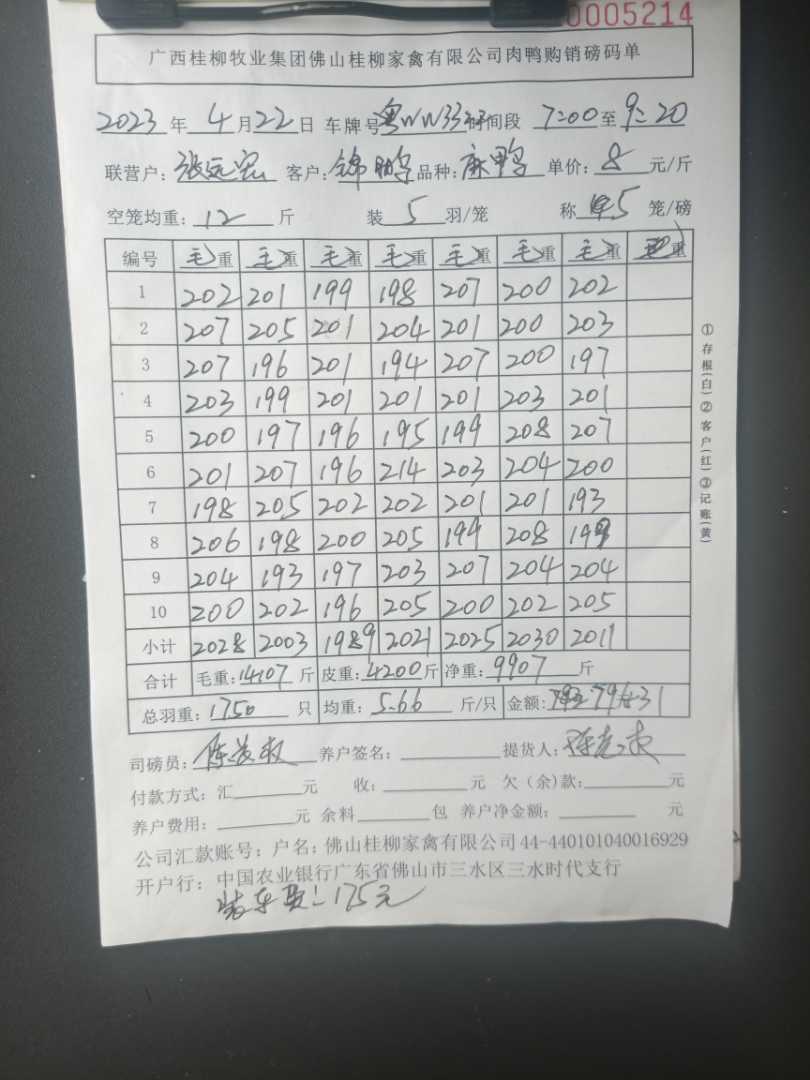 0005214
广西桂柳牧业集团佛山桂柳家禽有限公司肉鸭购销磅码单
2023 年 4 月 22 日 车牌号 粤WW33 时间段 7:00 至 9:20
联营户: 张远宏 客户: 锦鹏 品种: 麻鸭 单价: 8 元/斤
空笼均重: 12 斤 装 5 羽/笼 称 5 笼/磅
编号 毛重 毛重 毛重 毛重 毛重 毛重 毛重 重
1 202 201 199 198 207 200 202
2 207 205 201 204 201 200 203
3 207 196 201 194 207 200 197
4 203 199 201 201 201 203 201
5 200 197 196 195 199 208 207
6 201 207 196 214 203 204 200
7 198 205 202 202 201 201 193
8 206 198 200 205 199 208 199
9 204 193 197 203 207 204 204
10 200 202 196 205 200 202 205
小计 2028 2003 1989 2021 2025 2030 2011
合计 毛重: 14107 斤 皮重: 4200 斤 净重: 9907 斤
总羽重: 1750 只 均重: 5.66 斤/只 金额:
司磅员: 养户签名: 提货人:
付款方式: 汇 元 收: 元 欠(余)款: 元
养户费用: 元 余料 包 养户净金额: 元
公司汇款账号: 户名: 佛山桂柳家禽有限公司 44-440101040016929
开户行: 中国农业银行广东省佛山市三水区三水时代支行
装车费: 175元
①存根(白)②客户(红)③记账(黄)